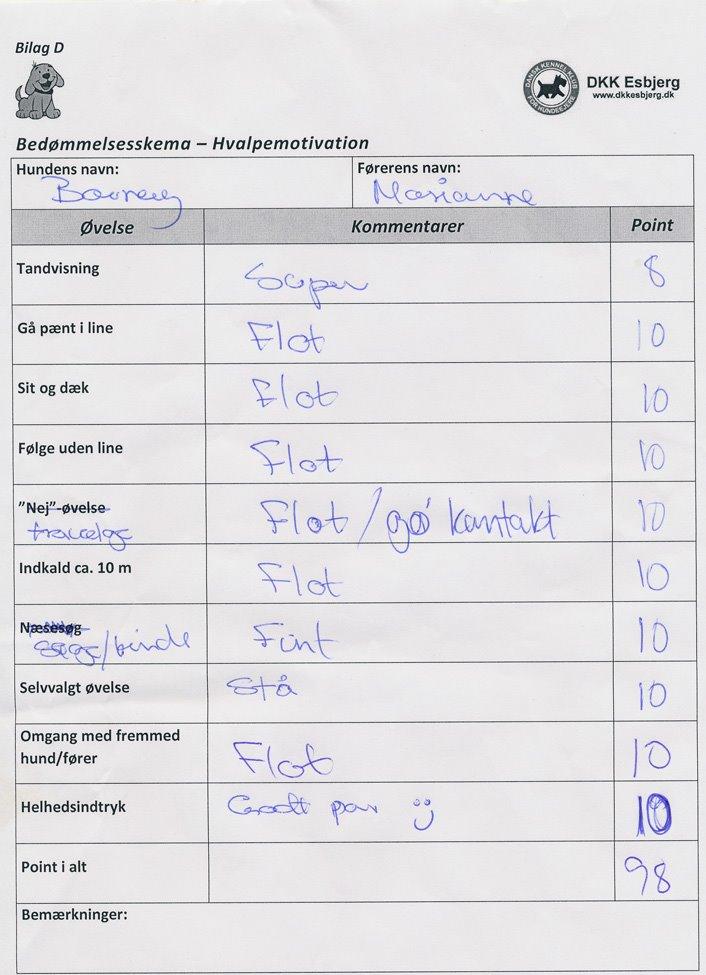 Bilag D
DANSK KENNEL KLUB
FOR HUNDEEJERE
DKK Esbjerg
www.dkkesbjerg.dk
Bedømmelsesskema – Hvalpemotivation
Hundens navn:
Førerens navn:
Marianne
Øvelse Kommentarer Point
Tandvisning Super 8
Gå pænt i line Flot 10
Sit og dæk Flot 10
Følge uden line Flot 10
"Nej"-øvelse Flot / god kontakt 10
Indkald ca. 10 m Flot 10
Næsesøg Fint 10
Selvvalgt øvelse Stå 10
Omgang med fremmed
hund/fører Flot 10
Helhedsindtryk Godt par 10
Point i alt 98
Bemærkninger: